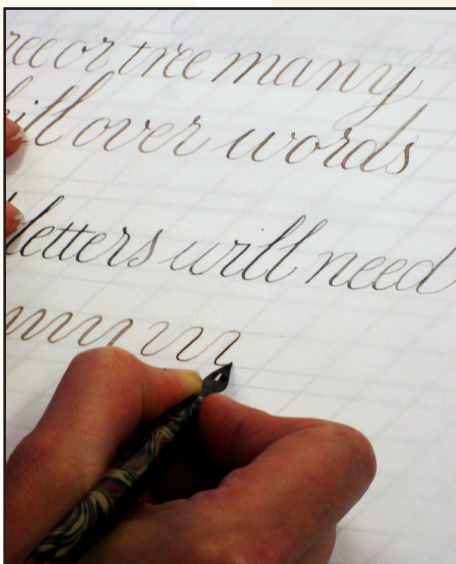 ree or tree many
ill over words
letters will need